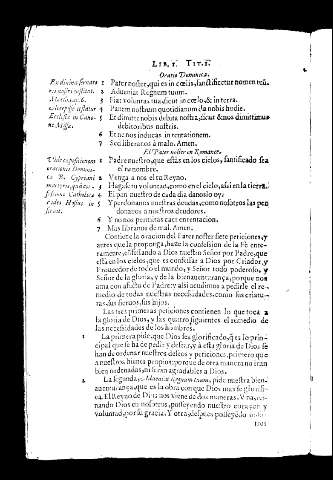 LIB. I. TIT. I.
Oratio Dominica.
1 Pater noster, qui es in cœlis, sanctificetur nomen tuū.
2 Adveniat Regnum tuum.
3 Fiat voluntas tua sicut in cœlo, & in terra.
4 Panem nostrum quotidianum da nobis hodie.
5 Et dimitte nobis debita nostra, sicut & nos dimittimus
debitoribus nostris.
6 Et ne nos inducas in tentationem.
7 Sed libera nos à malo. Amen.
El Pater noster en Romance.
1 Padre nuestro, que estàs en los cielos, santificado sea
el tu nombre.
2 Venga à nos el tu Reyno.
3 Hagase tu voluntad, como en el cielo, assi en la tierra.
4 El pan nuestro de cada dia danoslo oy.
5 Y perdonanos nuestras deudas, como nosotros las per
donamos à nuestros deudores.
6 Y no nos permitas caer en tentacion.
7 Mas libranos de mal. Amen.
Contiene la oracion del Pater noster siete peticiones, y
antes que la proponga, haze la confession de la Fè ente-
ramente, confessando à Dios nuestro Señor por Padre, que
està en los cielos, que es confessar à Dios por Criador, y
Proueedor de todo el mundo, y Señor todo poderoso, y
Señor de la gloria, y de la bienauenturança, porque nos
ama con afecto de Padre, y assi acudimos à pedirle el re-
medio de todas nuestras necessidades, como sus criatu-
ras, sus sieruos, sus hijos.
Las tres primeras peticiones contienen lo que toca à
la gloria de Dios, y las quatro siguientes el remedio de
las necessidades de los hombres.
1 La primera pide, que Dios sea glorificado, q̃ es lo prin-
cipal que se ha de pedir y dessear, y à esta gloria de Dios se
han de ordenar nuestros desseos y peticiones, primero que
à nuestros bienes proprios, porque de otra manera no serian
bien ordenadas, ni serian agradables à Dios.
2 La segunda, Adveniat Regnum tuum, pide nuestra bien-
auenturança, que es la obra con que Dios mas se glorifi-
ca. El Reyno de Dios nos viene de dos maneras. Vna, rei-
nando Dios en nosotros, posseyendo nuestro coraçon y
voluntad por su gracia. Y otra, despues posseyẽdo noso-